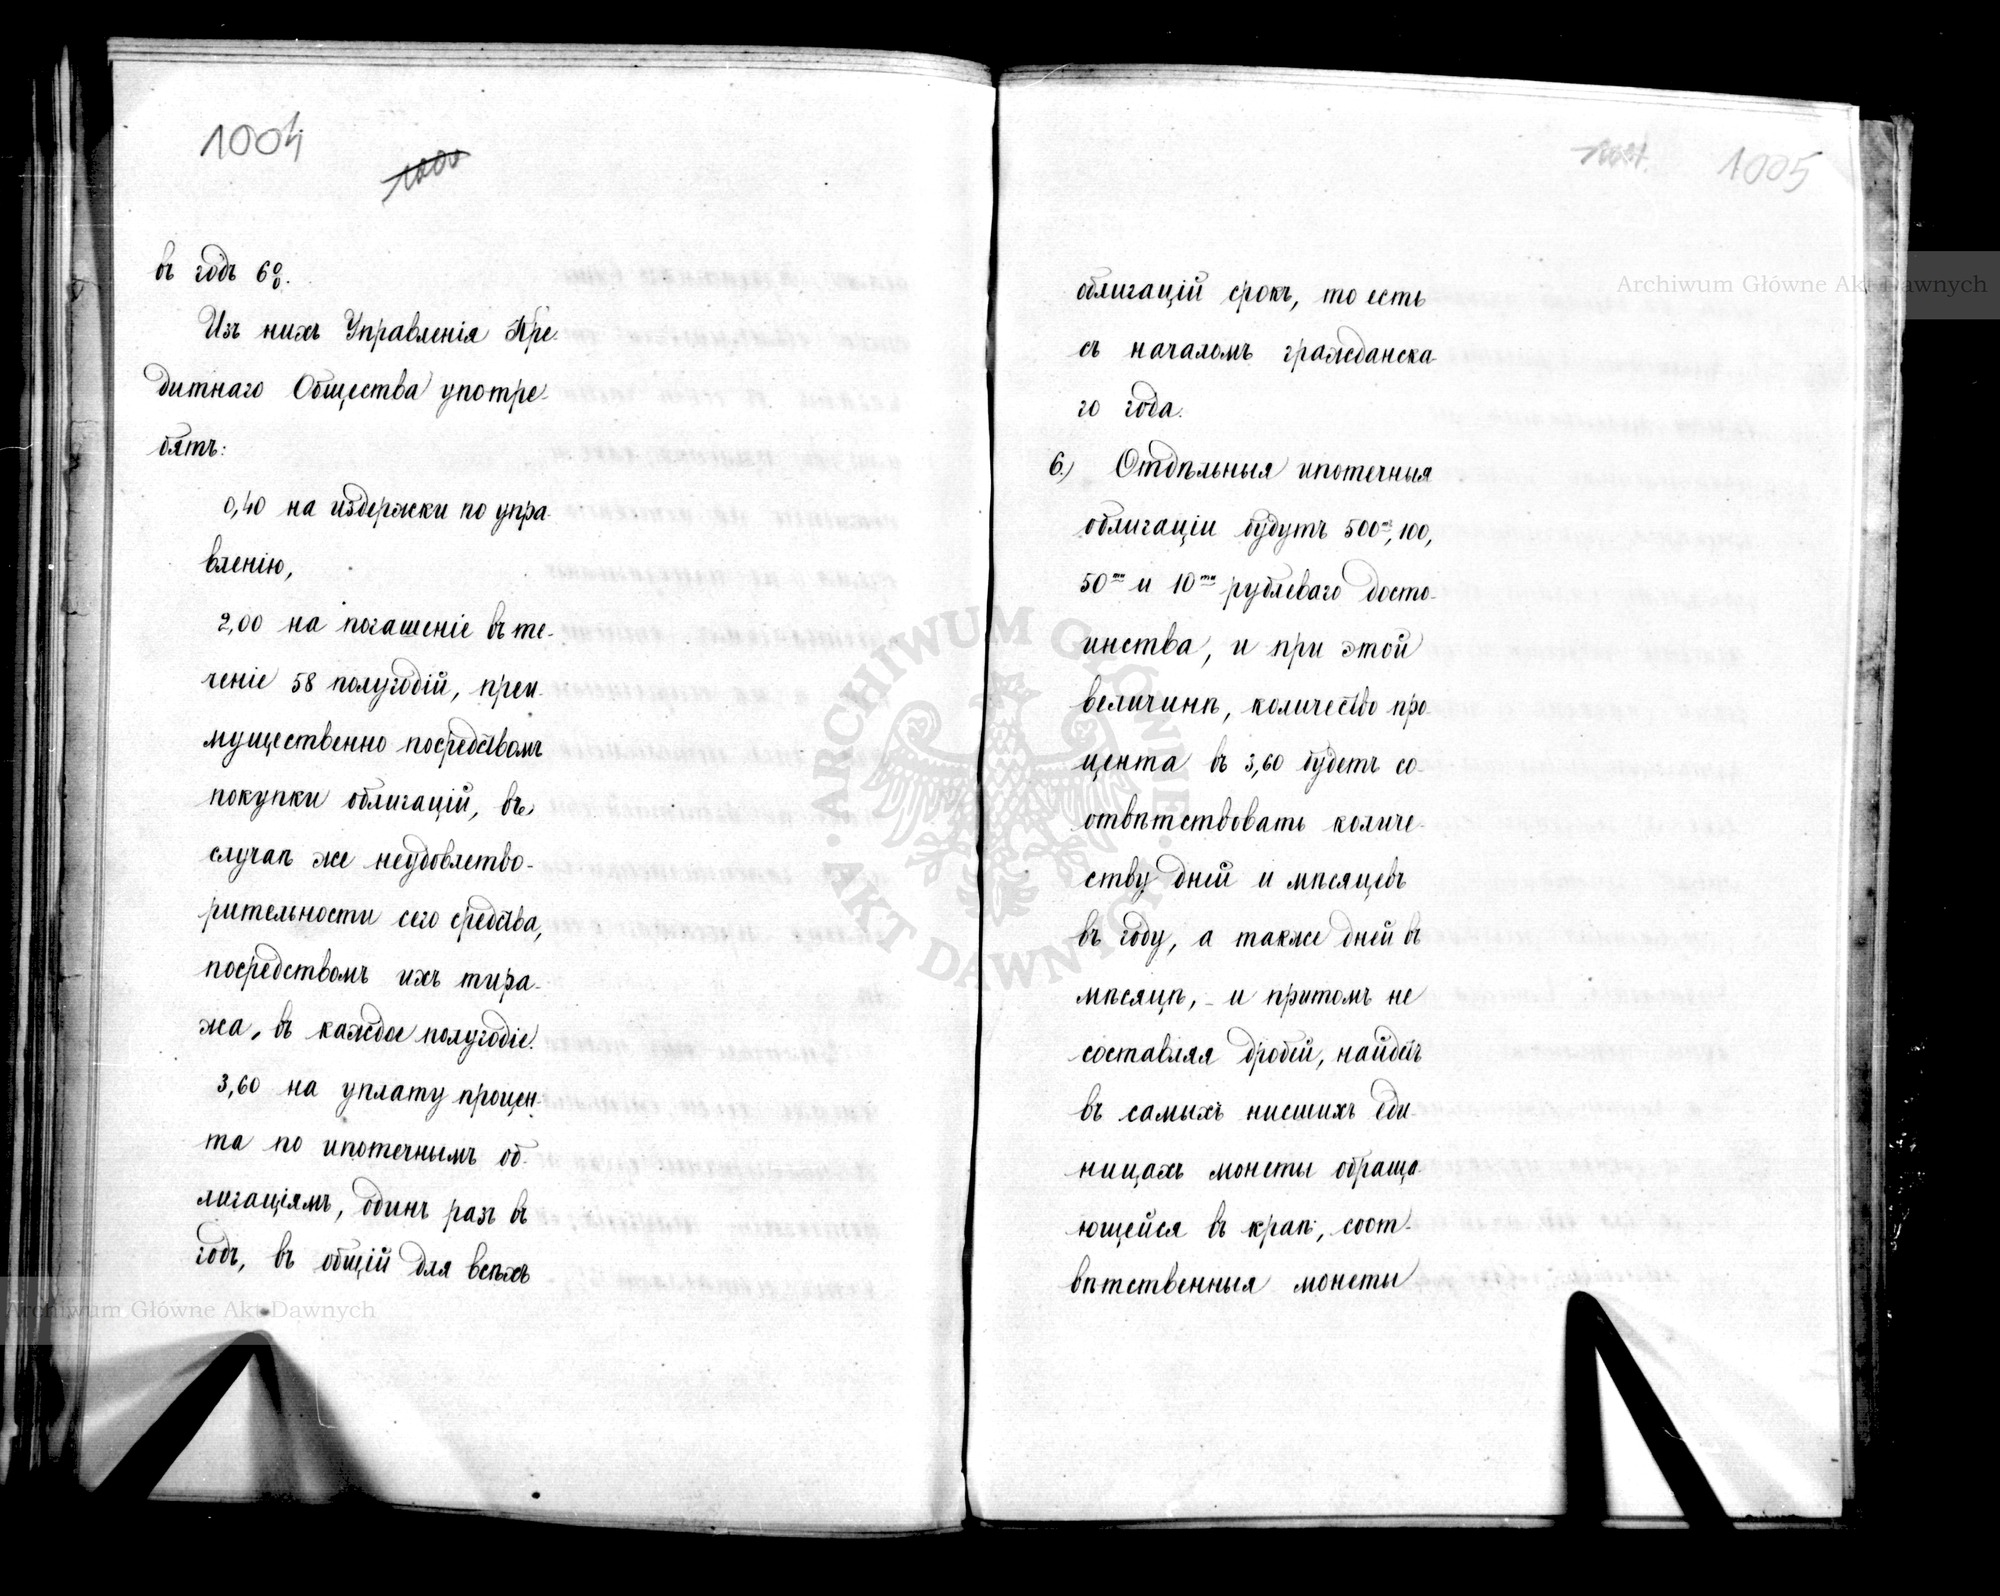 1004
1000
въ годъ 6%.
Изъ нихъ Управленія Кре-
дитнаго Общества употре-
бятъ:
0,40 на издержки по упра-
вленію,
2,00 на погашеніе въ те-
ченіе 58 полугодій, преи-
мущественно посредствомъ
покупки облигацій, въ
случаѣ же неудовлетво-
рительности сего средства,
посредствомъ ихъ тира-
жа, въ каждое полугодіе.
3,60 на уплату процен-
та по ипотечнымъ об-
лигаціямъ, одинъ разъ въ
годъ, въ общій для всѣхъ
1005
облигацій срокъ, то есть
съ началомъ гражданска-
го года.
6.) Отдѣльныя ипотечныя
облигаціи будутъ 500тъ, 100,
50ти и 10ти рублеваго досто-
инства, и при этой
величинѣ, количество про
цента въ 3,60 будетъ со-
отвѣтствовать количе-
ству дней и мѣсяцевъ
въ году, а также дней въ
мѣсяцѣ, - и притомъ не
составляя дробей, найдетъ
въ самыхъ нисшихъ еди
ницахъ монеты обраща
ющейся въ краѣ, соот-
вѣтственныя монеты
Archiwum Główne Akt Dawnych
Archiwum Główne Akt Dawnych
ARCHIWUM GŁÓWNE
AKT DAWNYCH